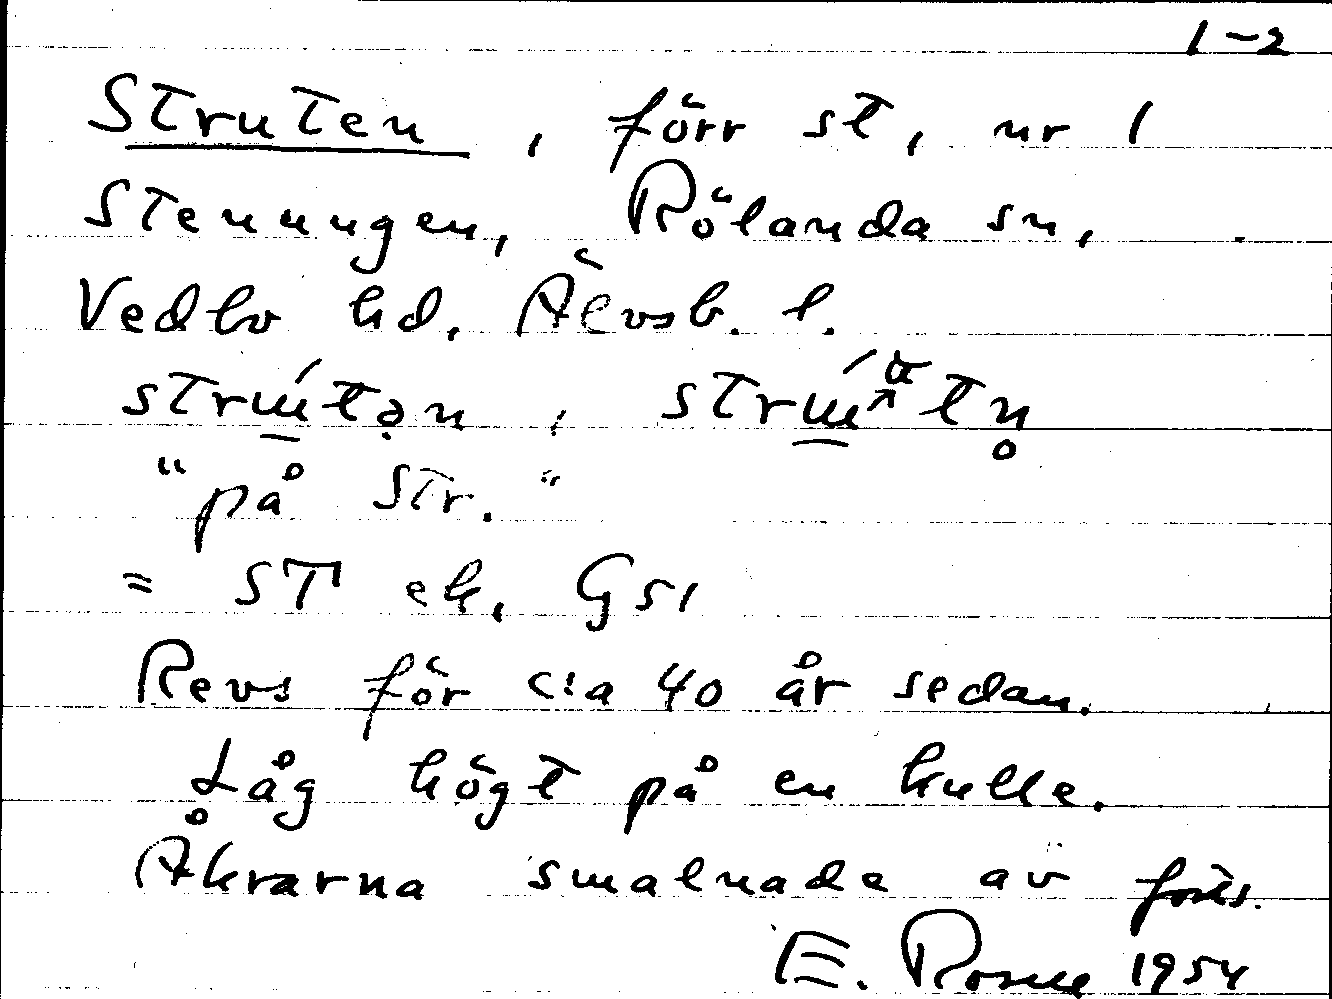 1-2
Struten, förr st, nr 1
Stenungen, Rölanda sn,
Vedbo hd. Älvsb. l.
"på Str."
= ST ek. Gs1
Revs för c:a 40 år sedan.
Låg högt på en kulle.
Åkrarna smalnade av forts.
E. Rosne 1954